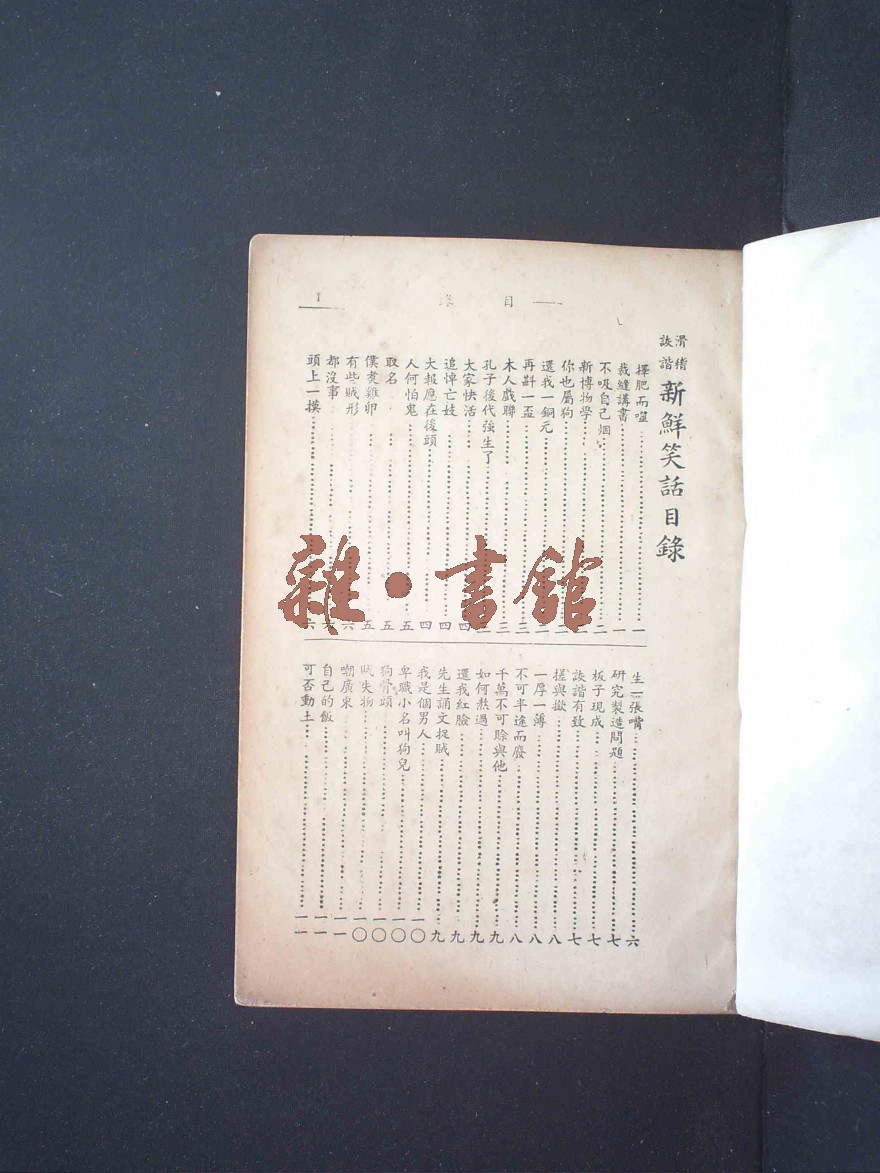 目錄
1
滑稽
詼諧
新鮮笑話目錄
擇肥而噬……一
裁縫講書……一
不吸自己烟……
新博物學……
你也屬狗……
還我一銅元……
再斟一盃……
木人戲聯……
孔子後代強生了……
大家快活……四
追悼亡妓……四
大報應在後頭……四
人何怕鬼……五
取名……五
僕煑雞卵……五
有些賊形……六
都沒事……六
頭上一摸……六
生一張嘴……六
研究製造問題……七
板子現成……七
詼諧有致……七
搓與……八
一厚一薄……八
不可半途而廢……八
千萬不可賒與他……九
如何熬過……九
還我紅臉……九
先生誦文捉賊……九
我是個男人……一〇
卑職小名叫狗兒……一〇
狗骨頭……一〇
賊失物……一〇
嘲廣東……一一
自己的飯……一一
可否動土……一一
雜·書館